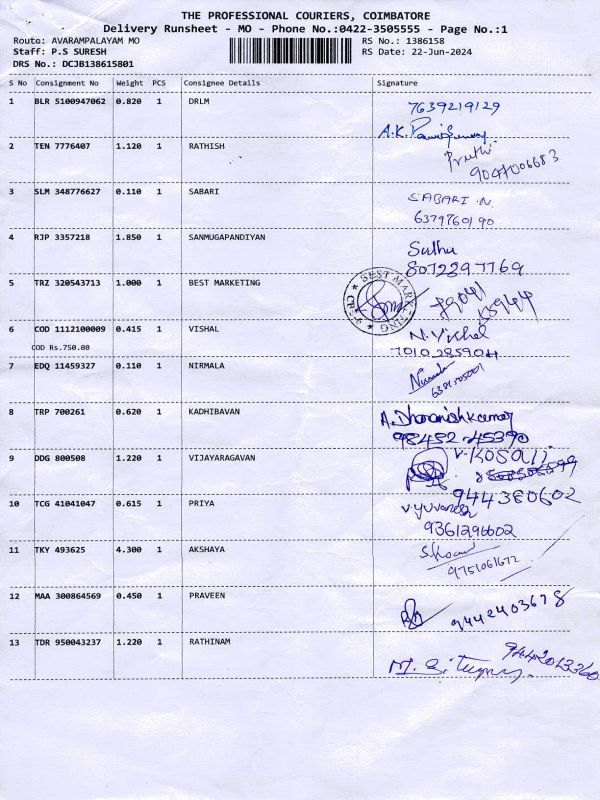 THE PROFESSIONAL COURIERS, COIMBATORE
Delivery Runsheet - MO - Phone No.:0422-3505555 - Page No.:1
Route: AVARAMPALAYAM MO
RS No.: 1386158
Staff: P.S SURESH
RS Date: 22-Jun-2024
DRS No.: DCJB138615801
S No Consignment No Weight PCS Consignee Details Signature
1 BLR 5100947062 0.820 1 DRLM 7639219129
A.K.
2 TEN 7776407 1.120 1 RATHISH Preethi
9047006683
3 SLM 348776627 0.110 1 SABARI SABARI N
6379760190
4 RJP 3357218 1.850 1 SANMUGAPANDIYAN Sudha
8072897769
5 TRZ 320543713 1.000 1 BEST MARKETING
BEST MARKETING
CBE-9
6 COD 1112100009 0.415 1 VISHAL N. Vishal
COD Rs.750.00 7010285904
7 EDQ 11459327 0.110 1 NIRMALA Nirmala
8 TRP 700261 0.620 1 KADHIBAVAN A. Dharanishkumar
98432-45390
9 DDG 800508 1.220 1 VIJAYARAGAVAN V. KOSALJ
944380602
10 TCG 41041047 0.615 1 PRIYA
9361296602
11 TKY 493625 4.300 1 AKSHAYA
9751061672
12 MAA 300864569 0.450 1 PRAVEEN 9442403678
13 TDR 950043237 1.220 1 RATHINAM 9442013360